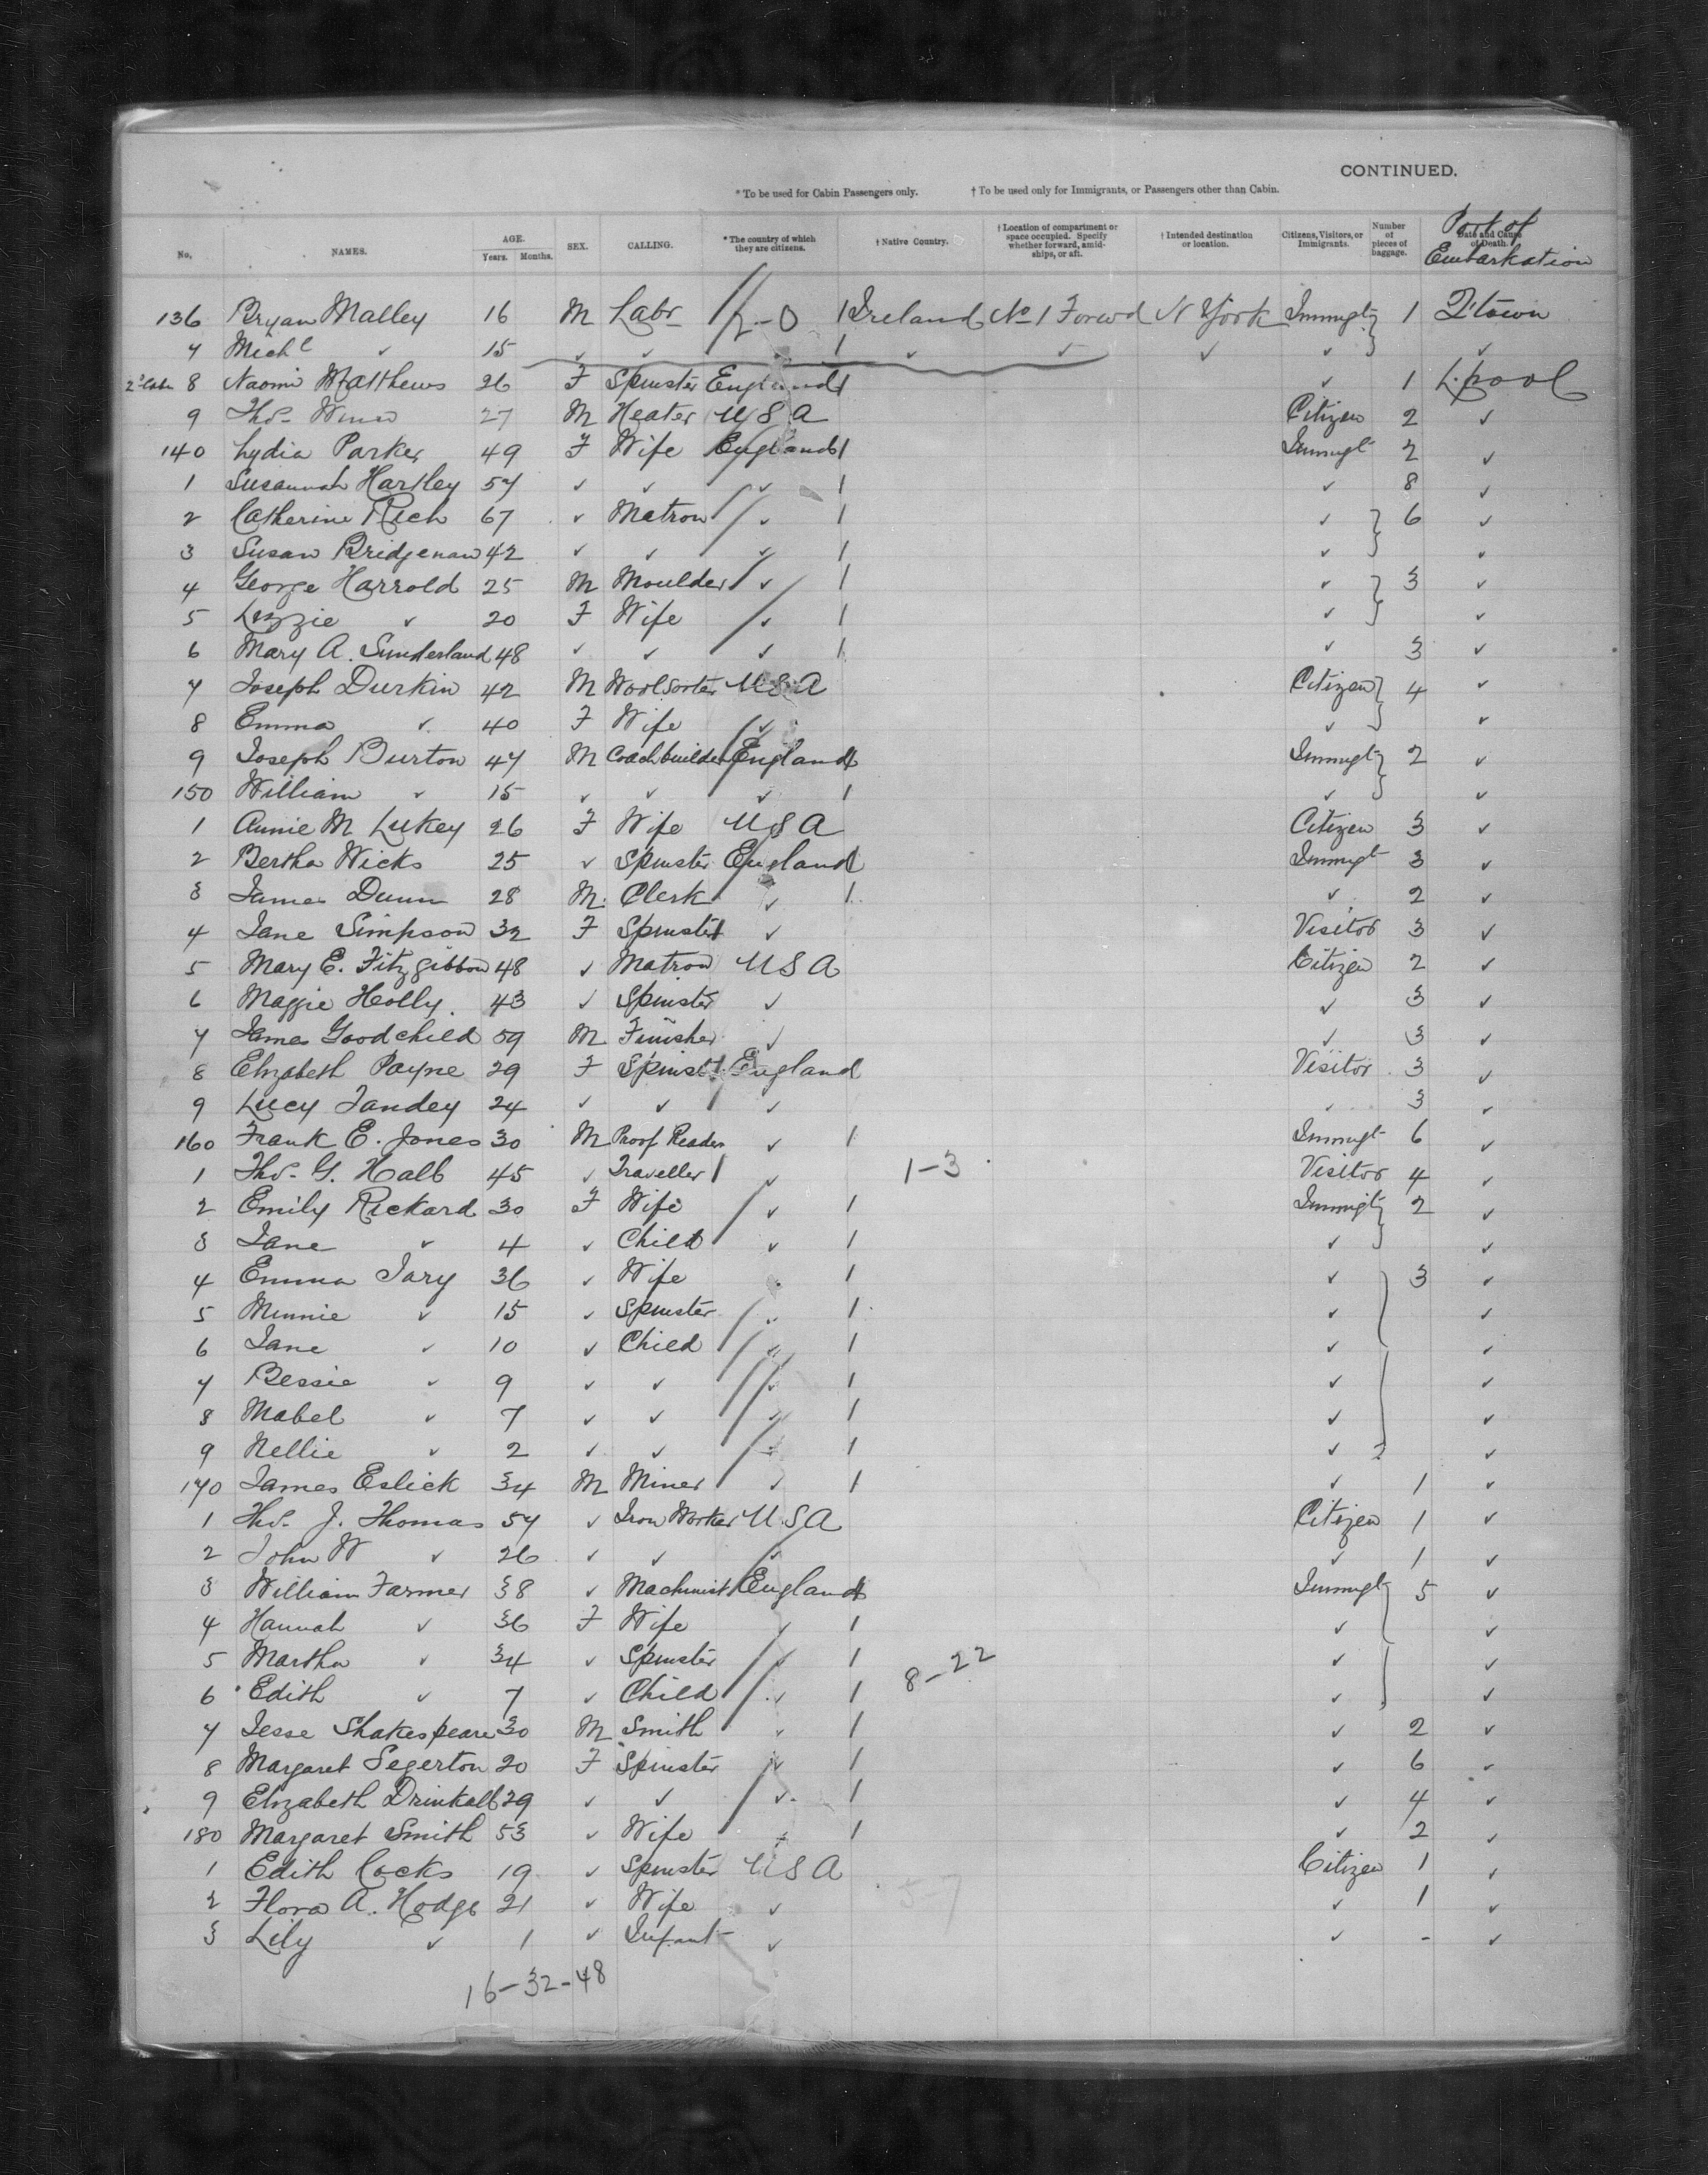 CONTINUED.
* To be used for Cabin Passengers only. † To be used only for Immigrants, or Passengers other than Cabin.
No. NAMES. AGE. Years. Months. SEX. CALLING. * The country of which they are citizens. † Native Country. † Location of compartment or space occupied. Specify whether forward, amidships, or aft. † Intended destination or location. Citizens, Visitors, or Immigrants. Number of pieces of baggage. Date and Cause of Death. Port of Embarkation
136 Bryan Malley 16 M Labr 2-0 1 Ireland No 1 Forwd N York Immigt 1 Q'town
7 Michl ✓ 15 ✓ ✓ 1 ✓ ✓ ✓ ✓ ✓
2d Cabn 8 Naomi Matthews 26 F Spinster England 1 ✓ 1 L.pool
9 Thos 27 M Heater U S A Citizen 2 ✓
140 Lydia Parker 49 F Wife England 1 Immigt 2 ✓
1 Susannah Hartley 57 ✓ ✓ ✓ 1 ✓ 8 ✓
2 Catherine Rich 67 ✓ Matron ✓ 1 ✓ 6 ✓
3 Susan Bridgeman 42 ✓ ✓ ✓ 1 ✓ ✓
4 George Harrold 25 M Moulder ✓ 1 ✓ 3 ✓
5 Lizzie ✓ 20 F Wife ✓ 1 ✓ ✓
6 Mary A. Sunderland 48 ✓ ✓ ✓ 1 ✓ 3 ✓
7 Joseph Durkin 42 M Woolsorter U S A Citizen 4 ✓
8 Emma ✓ 40 F Wife ✓ ✓ ✓
9 Joseph Burton 47 M Coachbuilder England 1 Immigt 2 ✓
150 William ✓ 15 ✓ ✓ ✓ 1 ✓ ✓
1 Annie M Lukey 26 F Wife U S A Citizen 3 ✓
2 Bertha Wicks 25 ✓ Spinster England 1 Immigt 3 ✓
3 James Dunn 28 M. Clerk ✓ 1 ✓ 2 ✓
4 Jane Simpson 32 F Spinster ✓ Visitor 3 ✓
5 Mary E. Fitzgibbon 48 ✓ Matron U S A Citizen 2 ✓
6 Maggie Holly. 43 ✓ Spinster ✓ ✓ 3 ✓
7 James Goodchild 59 M Finisher ✓ ✓ 3 ✓
8 Elizabeth Payne 29 F Spinster England Visitor 3 ✓
9 Lucy Tandey 24 ✓ ✓ ✓ ✓ 3 ✓
160 Frank E. Jones 30 M Proof Reader ✓ 1 Immigt 6 ✓
1 Thos G. Halb 45 ✓ Traveller ✓ 1-3 Visitor 4 ✓
2 Emily Rickard 30 F Wife ✓ 1 Immigt 2 ✓
3 Jane ✓ 4 ✓ Child ✓ 1 ✓ ✓
4 Emma Jary 36 ✓ Wife 1 ✓ 3 ✓
5 Minnie ✓ 15 ✓ Spinster ✓ 1 ✓ ✓
6 Jane ✓ 10 ✓ Child ✓ 1 ✓ ✓
7 Bessie ✓ 9 ✓ ✓ ✓ 1 ✓ ✓
8 Mabel ✓ 7 ✓ ✓ ✓ 1 ✓ ✓
9 Nellie ✓ 2 ✓ ✓ ✓ 1 ✓ ✓
170 James Eslick 34 M Miner ✓ 1 ✓ 1 ✓
1 Thos J. Thomas 57 ✓ Iron Worker U S A Citizen 1 ✓
2 John W ✓ 26 ✓ ✓ ✓ ✓ 1 ✓
3 William Farmer 38 ✓ Machinist England 1 Immigt 5 ✓
4 Hannah ✓ 36 F Wife ✓ 1 ✓ ✓
5 Martha ✓ 34 ✓ Spinster ✓ 1 8-22 ✓ ✓
6 Edith ✓ 7 ✓ Child ✓ 1 ✓ ✓
7 Jesse Shakespeare 30 M Smith ✓ 1 ✓ 2 ✓
8 Margaret Segerton 20 F Spinster ✓ 1 ✓ 6 ✓
9 Elizabeth Drinkall 29 ✓ ✓ ✓ 1 ✓ 4 ✓
180 Margaret Smith 53 ✓ Wife ✓ 1 ✓ 2 ✓
1 Edith Cocks 19 ✓ Spinster U S A Citizen 1 ✓
2 Flora A. Hodge 21 ✓ Wife ✓ 5-7 ✓ 1 ✓
3 Lily ✓ 1 ✓ Infant ✓ ✓ - ✓
16-32-48